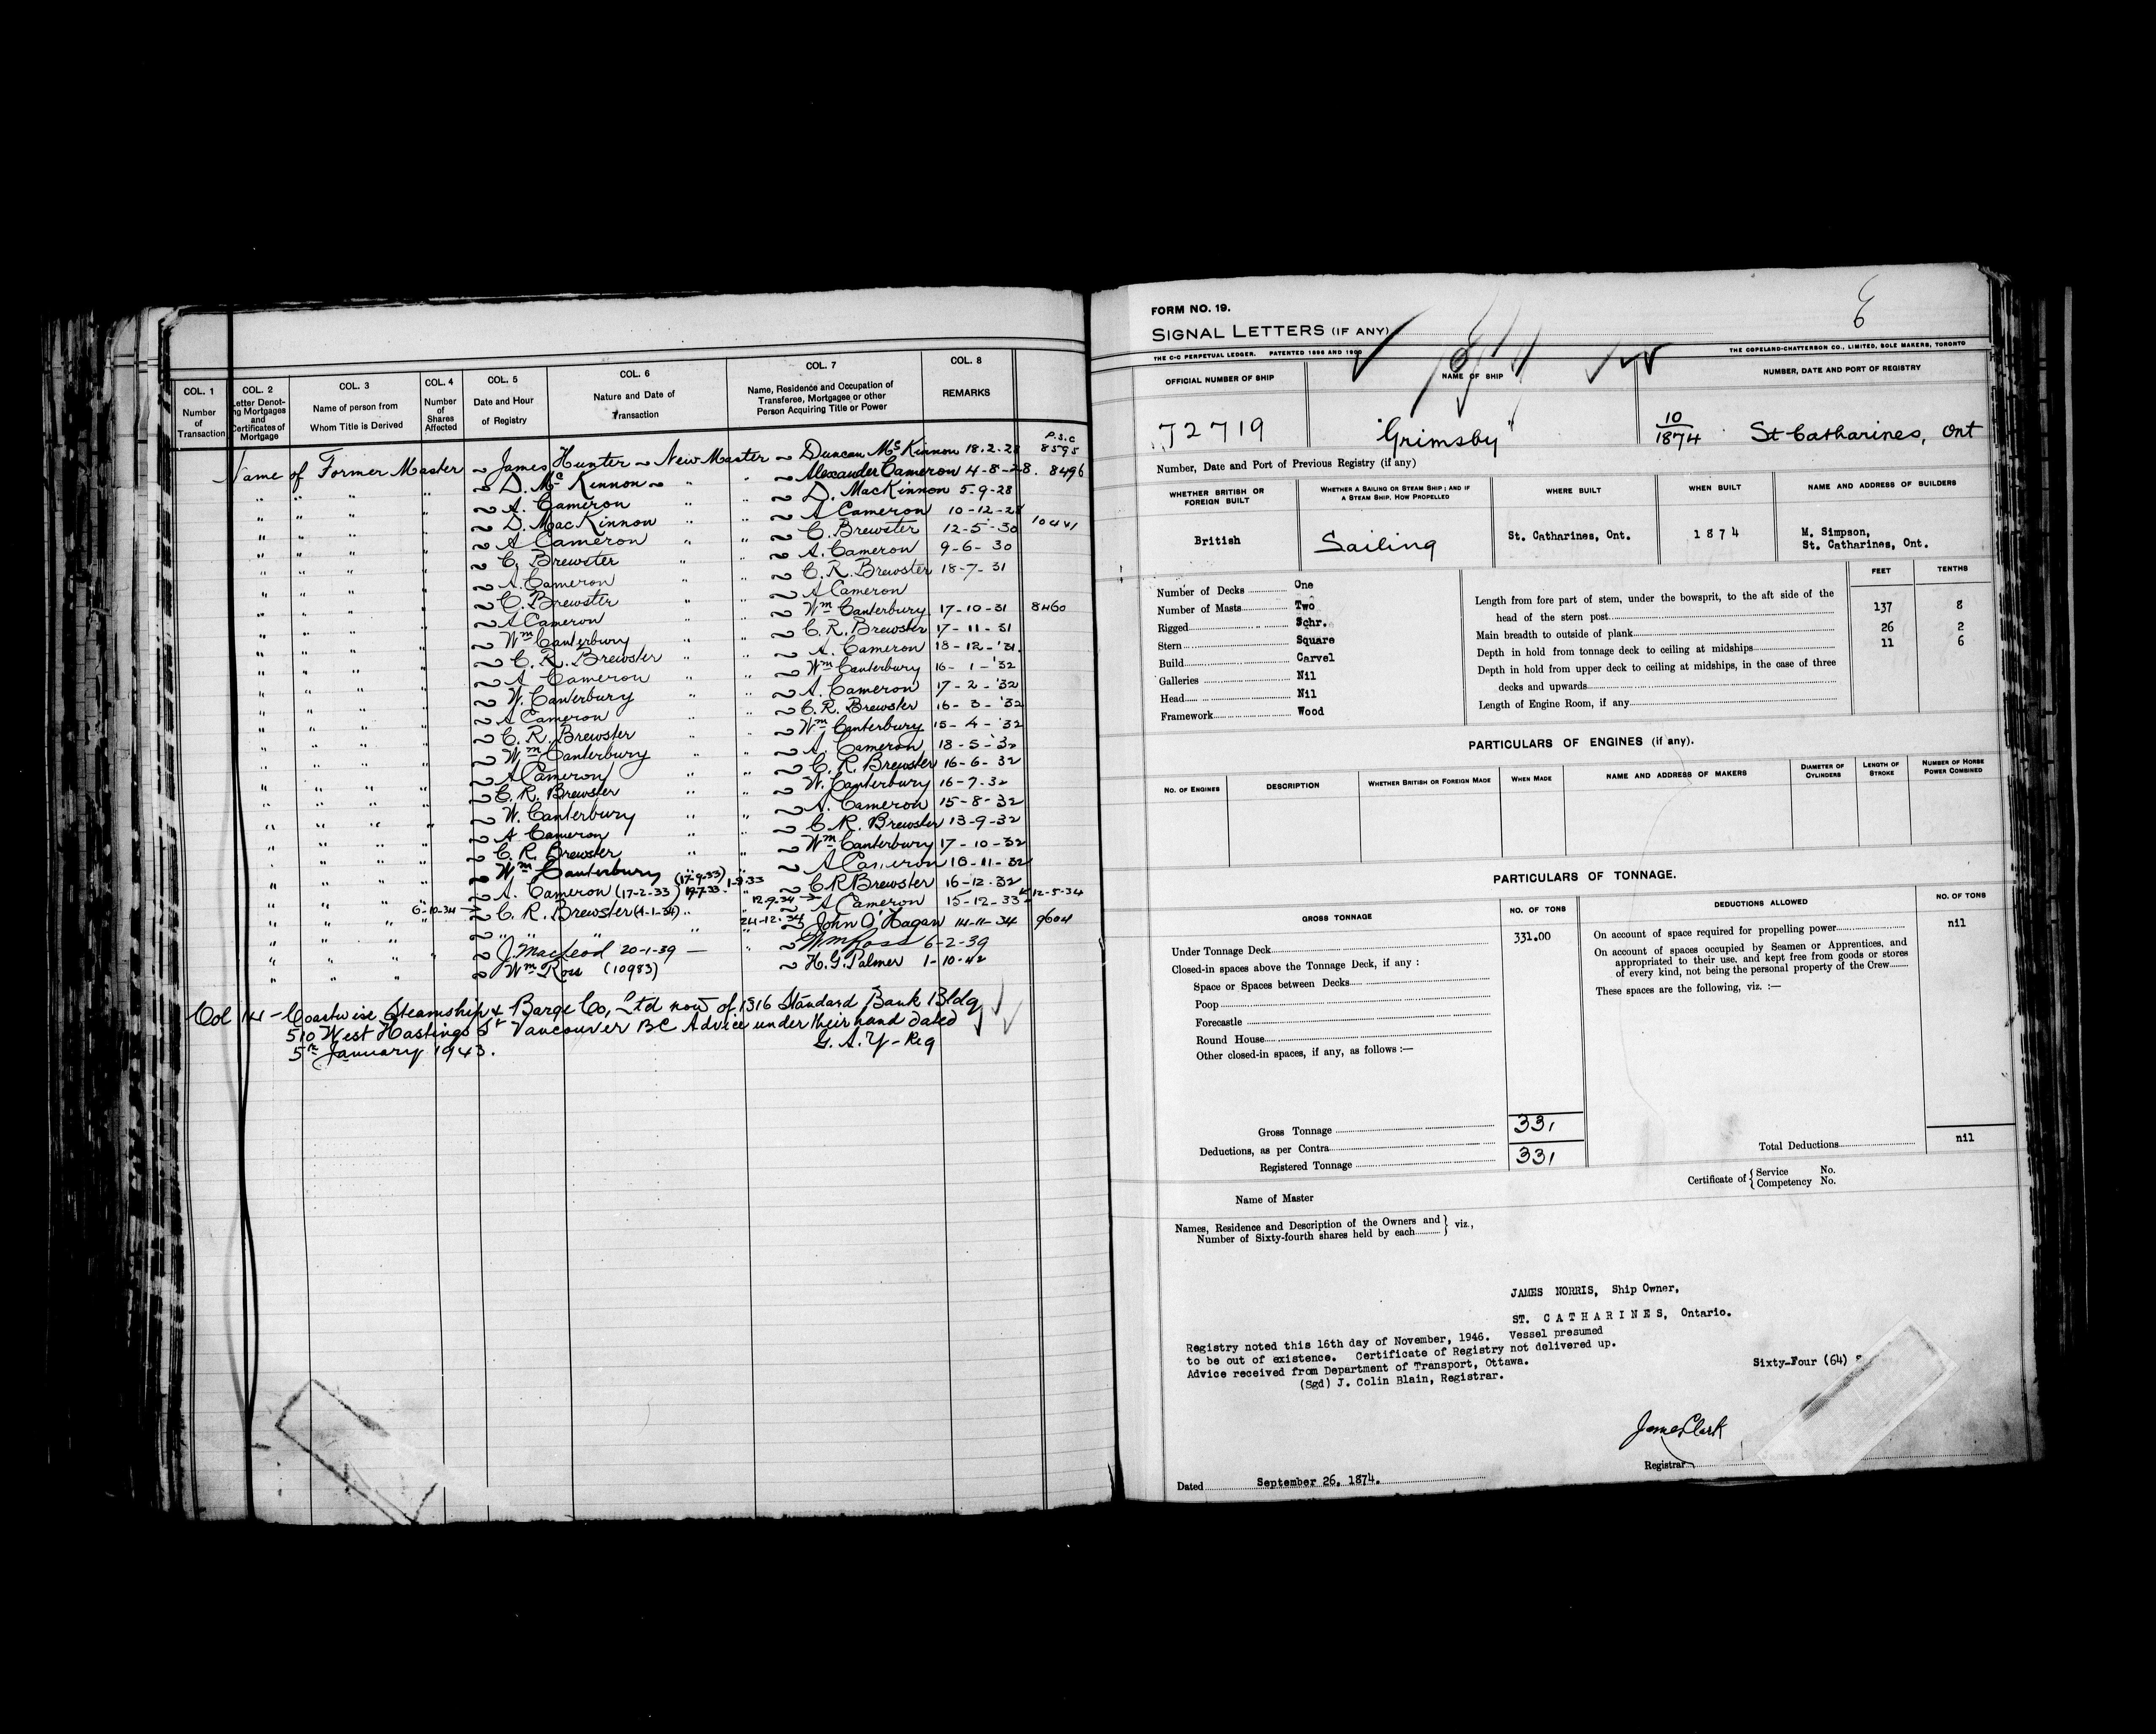 COL. 1
Number
of
Transaction
COL. 2
Letter Denot-
ing Mortgages
and
Certificates of
Mortgage
COL. 3
Name of person from
Whom Title is Derived
COL. 4
Number
of
Shares
Affected
COL. 5
Date and Hour
of Registry
COL. 6
Nature and Date of
Transaction
COL. 7
Name, Residence and Occupation of
Transferee, Mortgagee or other
Person Acquiring Title or Power
COL. 8
REMARKS
P.S.C
Name of Former Master ~ James Hunter ~ New Master ~ Duncan McKinnon 18.2.28 8595
" " " " ~ D. Mc Kinnon ~ " " ~ Alexander Cameron 4-8-28. 8496
" " " " ~ A. Cameron " " ~ D. MacKinnon 5-9-28
" " " " ~ D. MacKinnon " " ~ A Cameron 10-12-28
" " " " ~ A Cameron " " ~ C. Brewster 12-5-30 10441
" " " " ~ C. Brewster " " ~ A. Cameron 9-6-30
" " " " ~ A. Cameron " " ~ C. R. Brewster 18-7-31
" " " " ~ C. Brewster " " ~ A Cameron
" " " " ~ A Cameron " " ~ Wm Canterbury 17-10-31 8460
" " " " ~ Wm Canterbury " " ~ C. R. Brewster 17-11-31
" " " " ~ C. R. Brewster " " ~ A. Cameron 18-12-'31.
" " " " ~ A Cameron " " ~ Wm Canterbury 16-1-'32
" " " " ~ W. Canterbury " " ~ A. Cameron 17-2-'32
" " " " ~ A Cameron " " ~ C. R. Brewster 16-3-'32
" " " " ~ C. R. Brewster " " ~ Wm Canterbury 15-4-'32
" " " " ~ Wm Canterbury " " ~ A. Cameron 18-5-'32
" " " " ~ A Cameron " " ~ C. R. Brewster 16-6-32
" " " " ~ C. R. Brewster " " ~ W. Canterbury 16-7-32
" " " " ~ W. Canterbury " " ~ A. Cameron 15-8-32
" " " " ~ A Cameron " " ~ C. R. Brewster 13-9-32
" " " " ~ C. R. Brewster " " ~ Wm Canterbury 17-10-32
" " " " ~ Wm Canterbury (17-9-33) ~ A Cameron 16-11-32
" " " " ~ A. Cameron (17-2-33) 19-7-33 1-9-33 ~ C R Brewster 16-12-32
" " " 6-10-34 ~ C. R. Brewster (4-1-34) " 12.9.34 ~ A Cameron 15-12-33 12-5-34
" " " " ~ " " " " 24-12-34 ~ John O'Hagan 14-11-34 9604
" " " " ~ J. MacLeod 20-1-39 — " ~ Wm Ross 6-2-39
" " " ~ Wm Ross (10983) ~ H. G. Palmer 1-10-42
Col 14 - Coastwise Steamship & Barge Co, Ltd now of 1316 Standard Bank Bldg
510 West Hastings St Vancouver BC Advice under their hand dated
5th January 1943. G. A. Y - Reg
FORM NO. 19.
SIGNAL LETTERS (IF ANY)
THE C-C PERPETUAL LEDGER. PATENTED 1896 AND 1900
THE COPELAND-CHATTERSON CO., LIMITED, SOLE MAKERS, TORONTO
OFFICIAL NUMBER OF SHIP
NAME OF SHIP
NUMBER, DATE AND PORT OF REGISTRY
72719
"Grimsby"
10/1874 St Catharines, Ont
Number, Date and Port of Previous Registry (if any)
WHETHER BRITISH OR
FOREIGN BUILT
WHETHER A SAILING OR STEAM SHIP; AND IF
A STEAM SHIP, HOW PROPELLED
WHERE BUILT
WHEN BUILT
NAME AND ADDRESS OF BUILDERS
British
Sailing
St. Catharines, Ont.
1874
M. Simpson,
St. Catharines, Ont.
FEET
TENTHS
Number of Decks One
Number of Masts Two
Rigged Schr.
Stern Square
Build Carvel
Galleries Nil
Head Nil
Framework Wood
Length from fore part of stem, under the bowsprit, to the aft side of the
head of the stern post 137 8
Main breadth to outside of plank 26 2
Depth in hold from tonnage deck to ceiling at midships 11 6
Depth in hold from upper deck to ceiling at midships, in the case of three
decks and upwards
Length of Engine Room, if any
PARTICULARS OF ENGINES (if any).
NO. OF ENGINES
DESCRIPTION
WHETHER BRITISH OR FOREIGN MADE
WHEN MADE
NAME AND ADDRESS OF MAKERS
DIAMETER OF
CYLINDERS
LENGTH OF
STROKE
NUMBER OF HORSE
POWER COMBINED
PARTICULARS OF TONNAGE.
GROSS TONNAGE
NO. OF TONS
DEDUCTIONS ALLOWED
NO. OF TONS
Under Tonnage Deck 331.00
Closed-in spaces above the Tonnage Deck, if any :
Space or Spaces between Decks
Poop
Forecastle
Round House
Other closed-in spaces, if any, as follows :—
Gross Tonnage 331
Deductions, as per Contra
Registered Tonnage 331
On account of space required for propelling power nil
On account of spaces occupied by Seamen or Apprentices, and
appropriated to their use, and kept free from goods or stores
of every kind, not being the personal property of the Crew
These spaces are the following, viz. :—
Total Deductions nil
Name of Master
Certificate of { Service No.
Competency No.
Names, Residence and Description of the Owners and
Number of Sixty-fourth shares held by each } viz.,
JAMES NORRIS, Ship Owner,
ST. CATHARINES, Ontario.
Registry noted this 16th day of November, 1946. Vessel presumed
to be out of existence. Certificate of Registry not delivered up.
Advice received from Department of Transport, Ottawa.
(Sgd) J. Colin Blain, Registrar.
Sixty-Four (64)
James Clark
Registrar
Dated September 26, 1874.